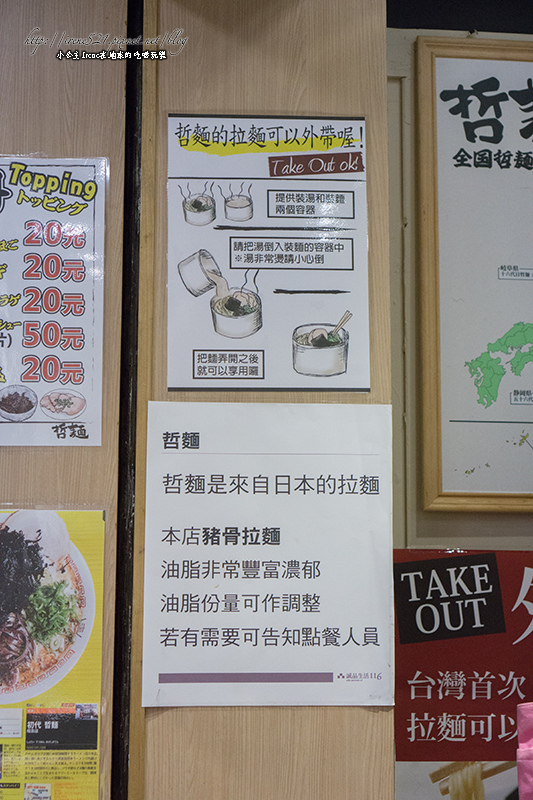 http://irene521.pixnet.net/blog
小公主Irene在地球的吃喝玩樂
哲麵的拉麵可以外帶喔!
Take Out ok!
提供裝湯和裝麵
兩個容器
請把湯倒入裝麵的容器中
※湯非常燙請小心倒
把麵弄開之後
就可以享用囉
Topping
トッピング
20元
20元
20元
50元
20元
哲麵
哲麵
哲麵是來自日本的拉麵
本店豬骨拉麵
油脂非常豐富濃郁
油脂份量可作調整
若有需要可告知點餐人員
誠品生活116
初代 哲麵
哲
全国哲麵
岐阜県
静岡県
TAKE
OUT
台灣首次
拉麵可以